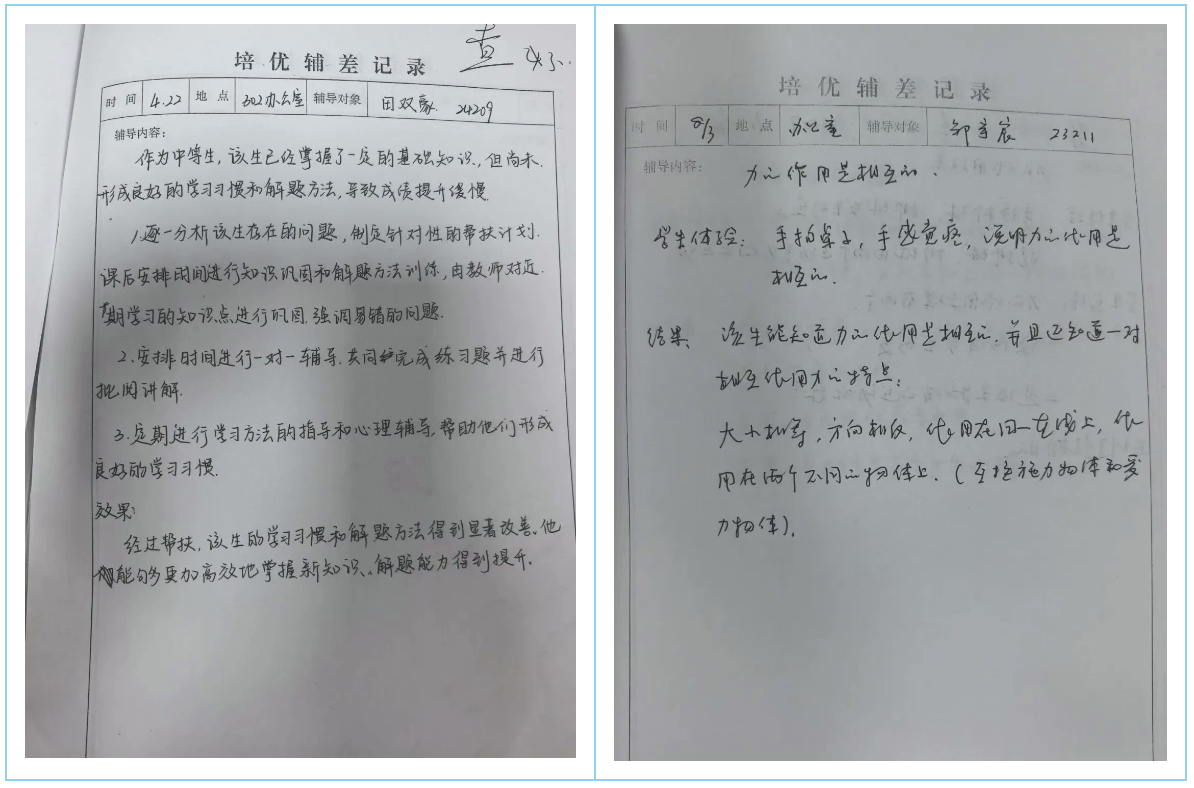 培优辅差记录
查
时间 4.22 地点 302办公室 辅导对象 田双豪 24209
辅导内容:
作为中等生,该生已经掌握了一定的基础知识,但尚未
形成良好的学习习惯和解题方法,导致成绩提升缓慢.
1.逐一分析该生存在的问题,制定针对性的帮扶计划.
课后安排时间进行知识巩固和解题方法训练,由教师对近
期学习的知识点进行巩固.强调易错的问题.
2.安排时间进行一对一辅导.共同完成练习题并进行
批阅讲解.
3.定期进行学习方法的指导和心理辅导,帮助他们形成
良好的学习习惯.
效果:
经过帮扶,该生的学习习惯和解题方法得到显著改善。他
能够更加高效地掌握新知识、解题能力得到提升.
培优辅差记录
时间 8/3 地点 办公室 辅导对象 宸 23211
辅导内容:
力的作用是相互的.
学生体验: 手拍桌子,手感觉疼,说明力的作用是
相互的.
结果: 该生能知道力的作用是相互的.并且还知道一对
相互作用力的特点:
大小相等,方向相反,作用在同一直线上,作
用在两个不同的物体上.(互换施力物体和受
力物体).